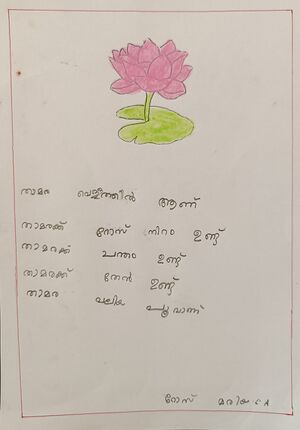 താമര വെള്ളത്തിൽ ആണ്
താമരക്ക് റോസ് നിറം ഉണ്ട്
താമരക്ക് ചന്തം ഉണ്ട്
താമരക്ക് തേൻ ഉണ്ട്
താമര വലിയ പൂ വാണ്
റോസ് മരിയ C A